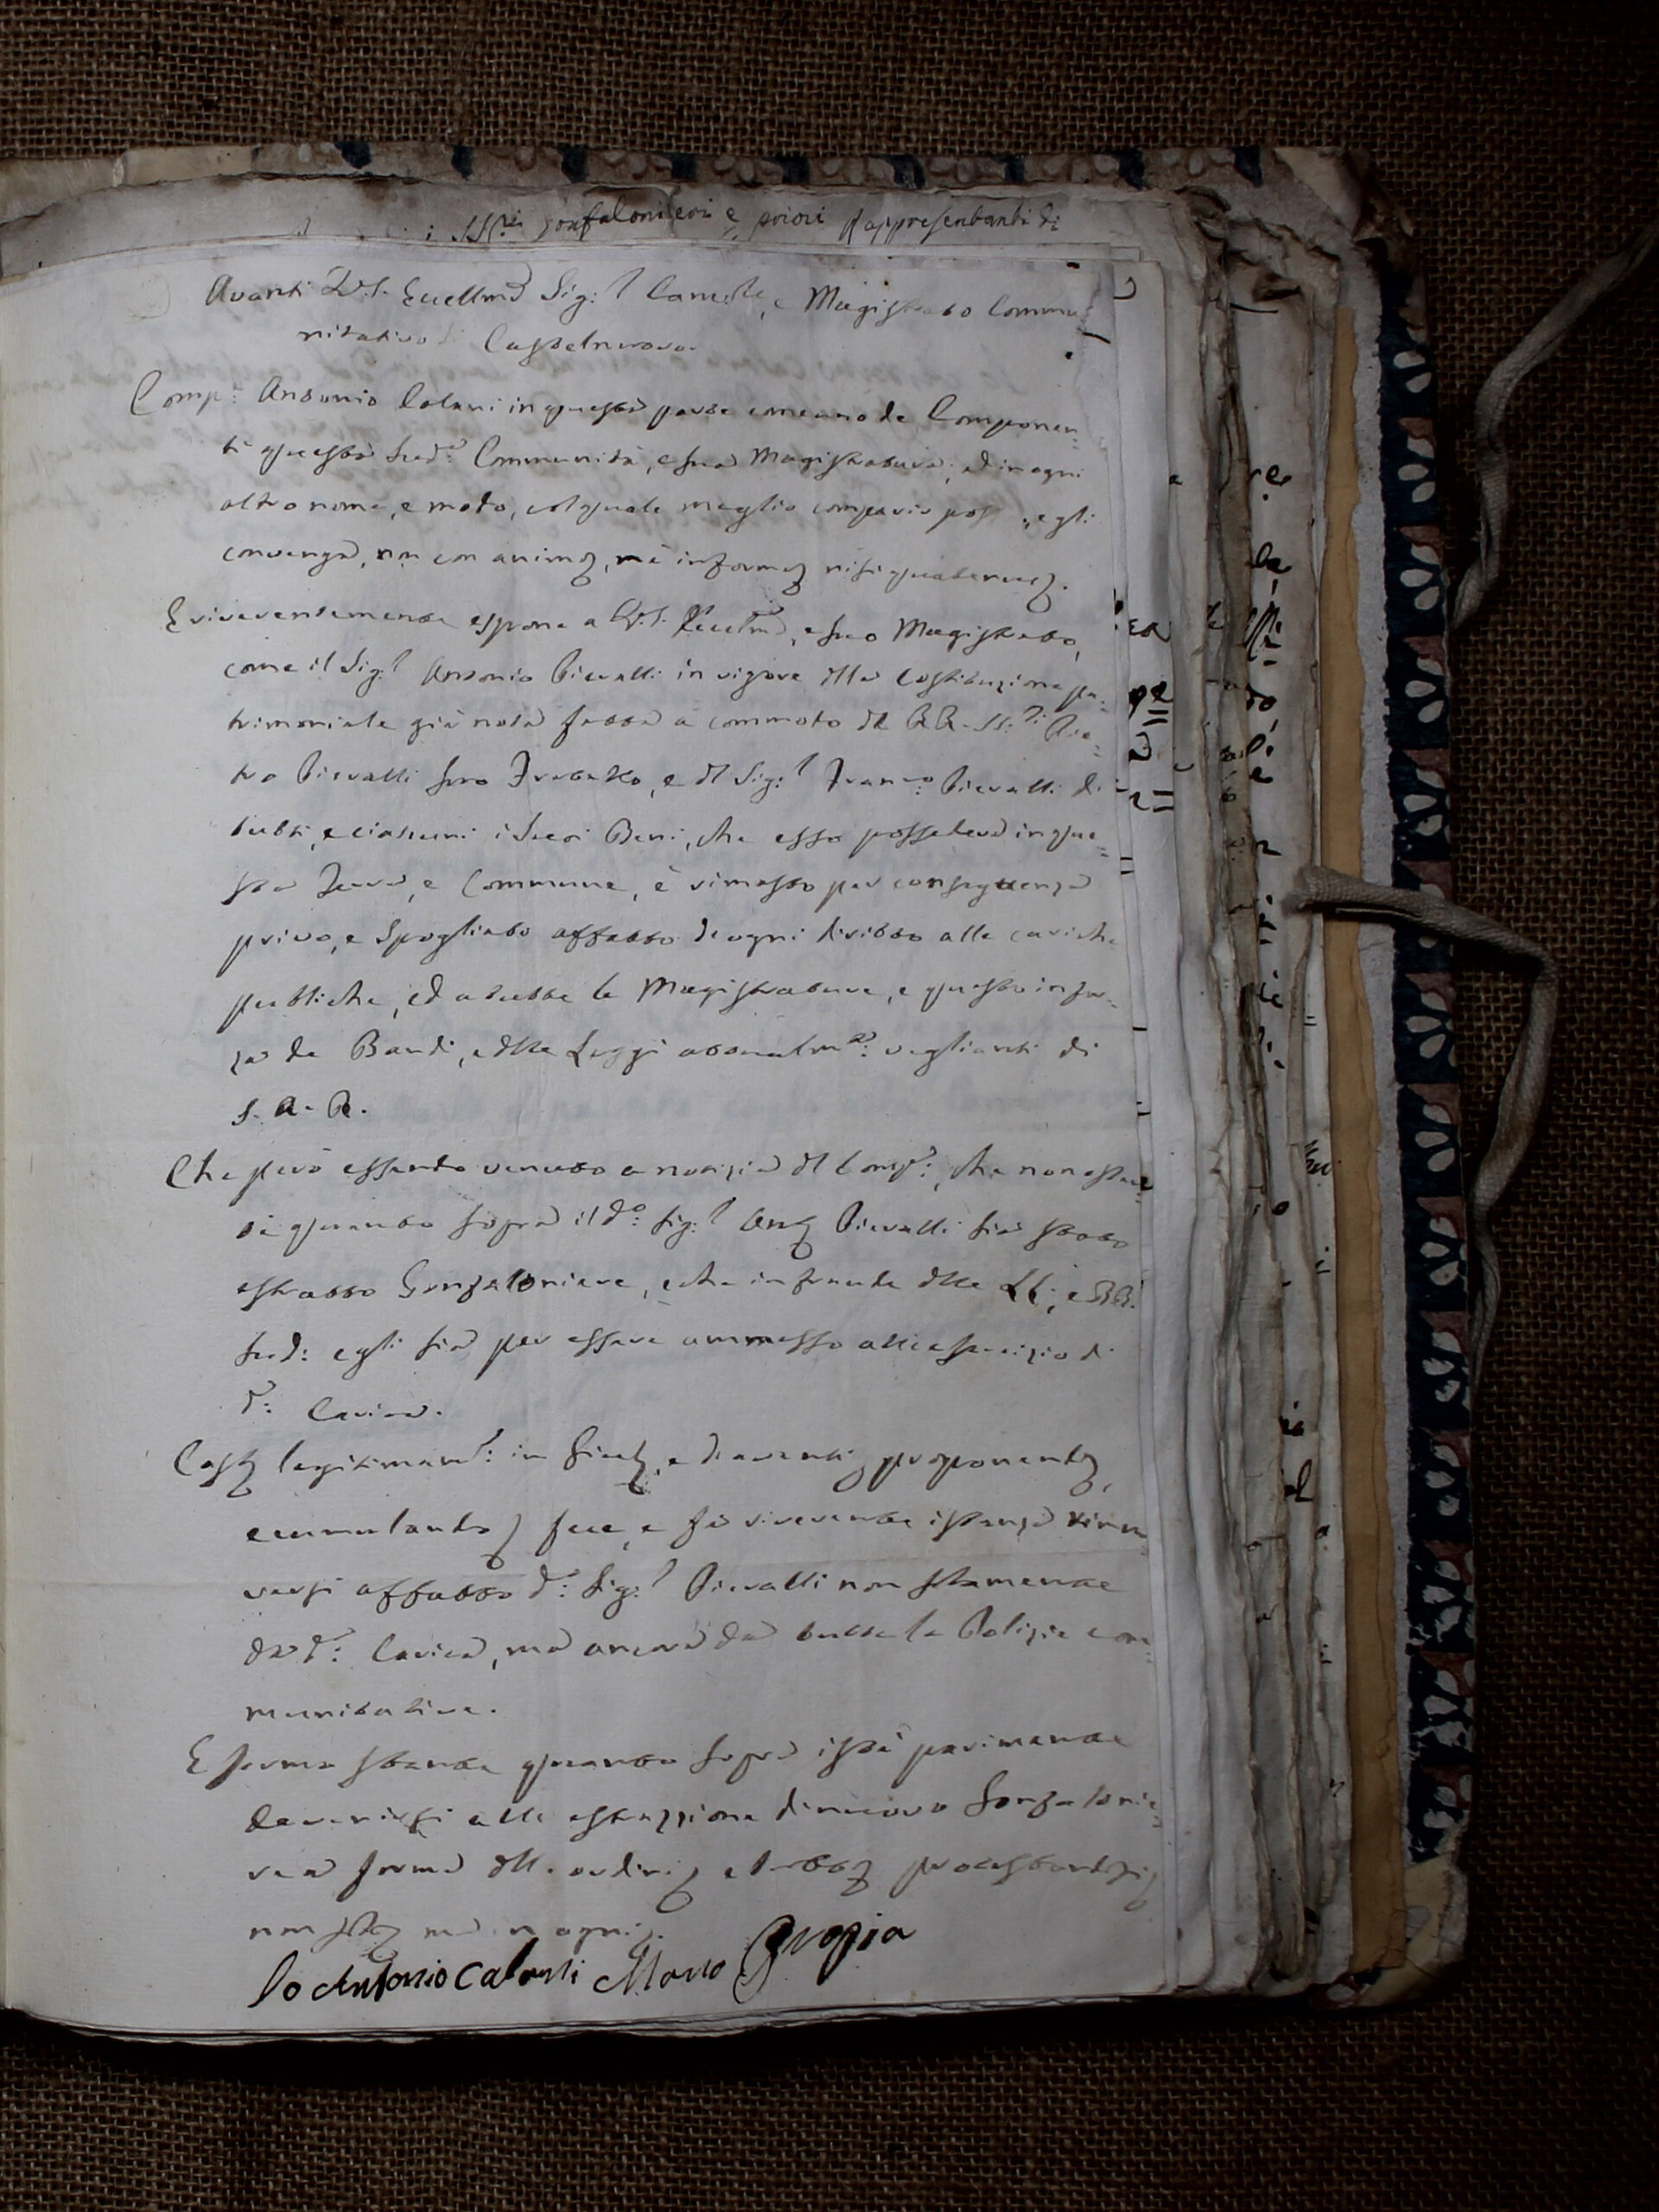 SS.ri Gonfalonieri e priori Rappresentanti di
Avanti V.S. Eccell.ma Sig.r Canc.re, e Magistrato Commu=
nitativo di Castelnuovo.
Comp.e Antonio Calani in questa parte come uno de Componen=
ti questa sud.a Communità, e sua Magistratura, ed in ogni
altro nome, e modo, col quale meglio comparir poss, e gli
convenga, non con animo, nè in forma nisi quatenus.
E riverentemente espone a V.S. Eccell.ma, e suo Magistrato,
come il Sig.r Antonio Pieralli in vigore della Costituzione pa=
trimoniale già nota fatta a commodo del RR. SS.ri Pie=
tro Pieralli suo Fratello, e del Sig.r Franc.o Pieralli di
tutti, e ciascuni i suoi Beni, che esso possedeva in que=
sta Terra, e Commune, è rimasto per conseguenza
privo, e spogliato affatto di ogni diritto alle cariche
publiche, ed a tutte le Magistrature, e questo in for=
za de Bandi, e delle Leggi attualm.e veglianti di
S. A. R.
Che però essendo venuto a notizia del Comp.e, che non ostan=
te quanto sopra il d.o Sig.r Ant. Pieralli sia stato
estratto Gonfaloniere, e che in fraude delle LL., e BB.
sud. egli sia per essere ammesso all'esercizio di
d.a Carica.
Costì legitimam.e in Fieri, e d'avanti proponendo,
accumulando fece, e fà riverente istanza rimo
versi affatto d.o Sig.r Pieralli non solamente
da d.a Carica, ma ancora da tutte le Polizie com=
munitative.
E ferma stante quanto sopra istà parimente
devenirsi alla estrazzione di nuovo Gonfalonie=
re a forma delli ordini, e tutto protestandosi
non solo ma in ogni
Io Antonio Calani Mano Propia